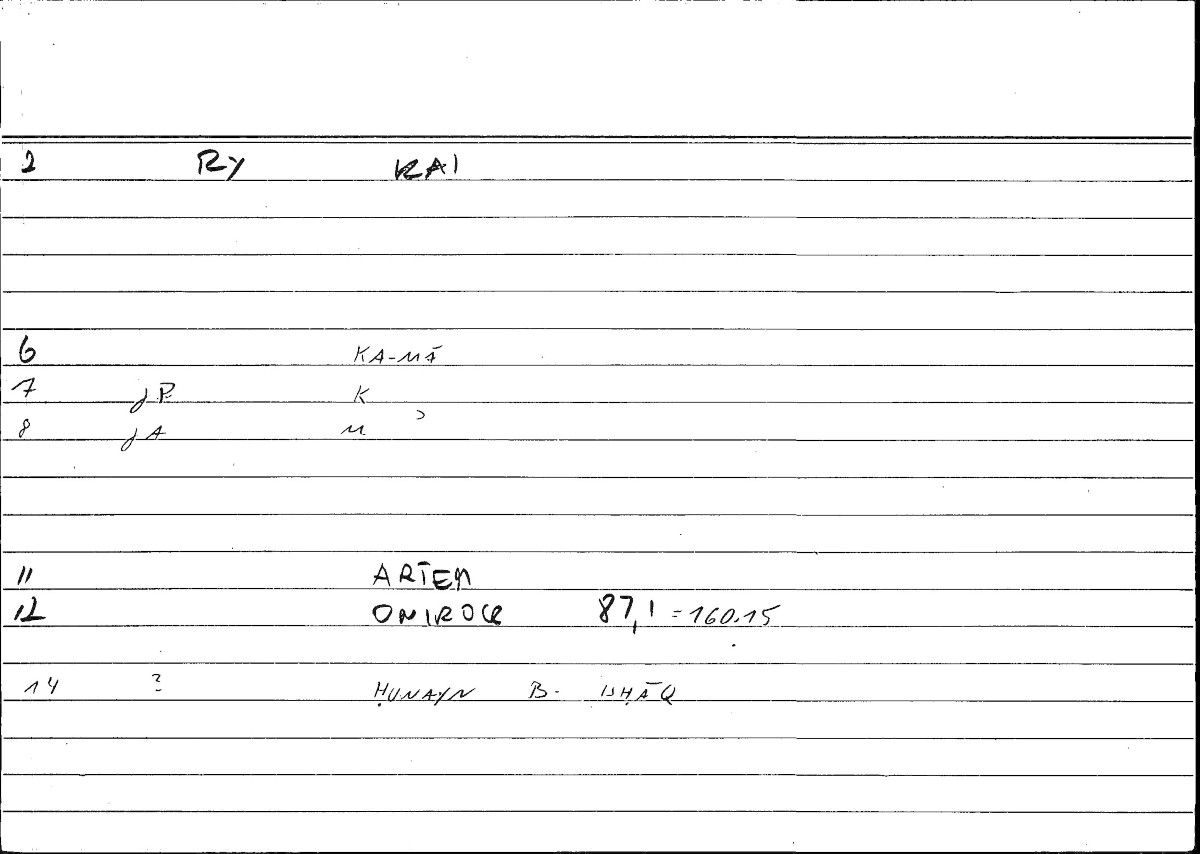 2 RY KAI
6 KA-MĀ
7 JP K
8 JA M ʾ
11 ARTEM
12 ONIROCR 87,1 = 160.15
14 ? ḤUNAYN B. ISḤĀQ